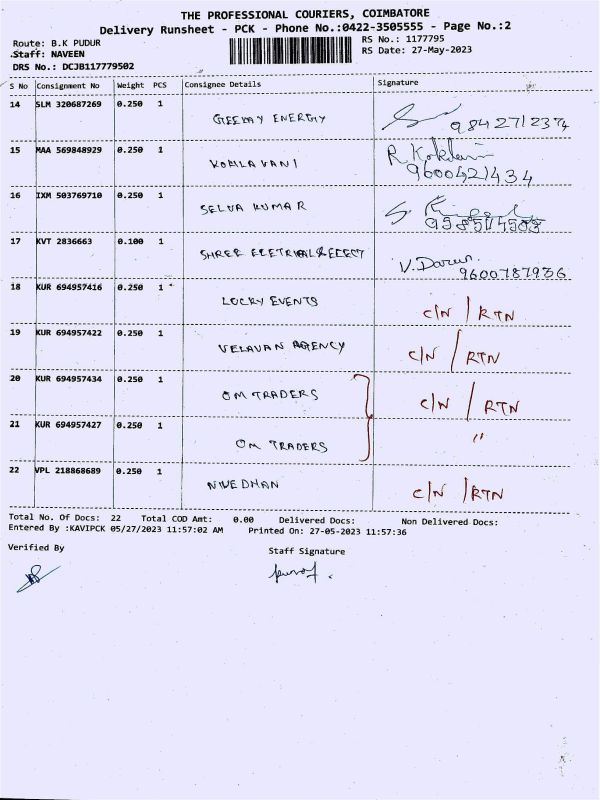 THE PROFESSIONAL COURIERS, COIMBATORE
Delivery Runsheet - PCK - Phone No.:0422-3505555 - Page No.:2
Route: B.K PUDUR
RS No.: 1177795
Staff: NAVEEN
RS Date: 27-May-2023
DRS No.: DCJB117779502
S No Consignment No Weight PCS Consignee Details Signature
14 SLM 320687269 0.250 1 ENERGY 9842712374
15 MAA 569848929 0.250 1 KOKILAVANI R 9600421434
16 IXM 503769710 0.250 1 SELVA KUMAR
17 KVT 2836663 0.100 1 SHREE V. 9600787936
18 KUR 694957416 0.250 1 LUCKY EVENTS C/N / RTN
19 KUR 694957422 0.250 1 VELAVAN AGENCY C/N / RTN
20 KUR 694957434 0.250 1 OM TRADERS C/N / RTN
21 KUR 694957427 0.250 1 OM TRADERS "
22 VPL 218868689 0.250 1 NIVEDHAN C/N / RTN
Total No. Of Docs: 22 Total COD Amt: 0.00 Delivered Docs: Non Delivered Docs:
Entered By :KAVIPCK 05/27/2023 11:57:02 AM Printed On: 27-05-2023 11:57:36
Verified By
Staff Signature